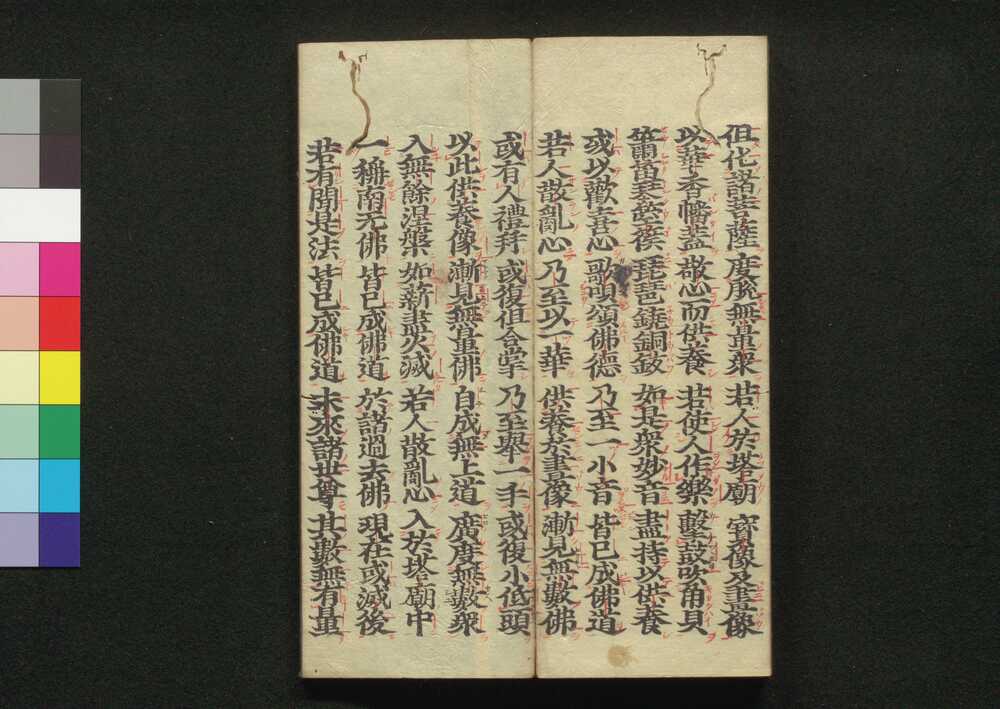 但化諸菩薩 度脫無量衆 若人於塔廟 寳像及畫像
以華香幡葢 敬心而供養 若使人作樂 擊鼓吹角貝
簫笛琴箜篌 琵琶鐃銅鈸 如是衆妙音 盡持以供養
或以歡喜心 歌唄頌佛德 乃至一小音 皆已成佛道
若人散亂心 乃至以一華 供養於畫像 漸見無數佛
或有人禮拜 或復但合掌 乃至舉一手 或復小低頭
以此供養像 漸見無量佛 自成無上道 廣度無數衆
入無餘涅槃 如薪盡火滅 若人散亂心 入於塔廟中
一稱南无佛 皆已成佛道 於諸過去佛 現在或滅後
若有聞是法 皆已成佛道 未來諸世尊 其數無有量